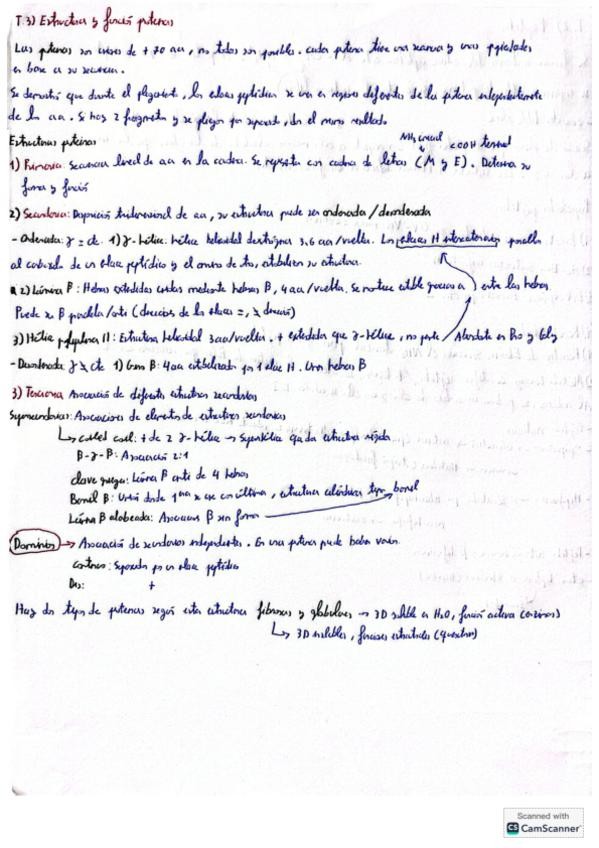 T.3) Estructura y función proteínas
Las proteínas son cadenas de + 70 aa, no todas son posibles. cada proteína tiene una secuencia y unas propiedades
en base a su secuencia.
Se demostró que durante el plegamiento, los enlaces peptídicos se van en regiones diferentes de la proteína independientemente
de los aa. Si hay 2 fragmentos y se pliegan por separado, dan el mismo resultado
Estructuras proteínas
NH2 inicial COOH terminal
1) Primaria: Secuencia lineal de aa en la cadena. Se representa con cadena de letras (M y E). Determina su
forma y función
2) Secundaria: Disposición tridimensional de aa, su estructura puede ser ordenada/desordenada
- Ordenada: 1) hélice: hélice helicoidal dextrógira 3,6 aa/vuelta. Los enlaces H intercatenarios paralelos
al carboxilo de un enlace peptídico y el amino de otro, estabilizan su estructura.
2) Lámina β: Hebras extendidas unidas mediante hebras β, 4 aa/vuelta. Se mantiene estable gracias a entre las hebras
Puede ser β paralela/anti (dirección de los enlaces =, dirección)
3) Hélice poliprolina II: Estructura helicoidal 3 aa/vuelta. + extendidas que hélice, no puente / Abundante en Pro y Gly
- Desordenada 1) Giros β: 4 aa estabilizados por 1 enlace H. Unen hebras β
3) Terciaria Asociación de diferentes estructuras secundarias
Supersecundarias: Asociaciones de elementos de estructuras secundarias
coiled coil: + de 2 hélice → Superhélice que da estructura rígida
Asociación 2:1
clave griega: Lámina β anti de 4 hebras
Barril β: Unión donde 1ª se une con última, estructura cilíndrica tipo barril
Lámina β alabeada: Asociación β sin forma
Dominios → Asociación de secundarias independientes. En una proteína puede haber varios.
Continuos: Separados por un enlace peptídico
Dis: +
Hay dos tipos de proteínas según esta estructura fibrosas y globulares → 3D soluble en H2O, función activa (enzimas)
↳ 3D insolubles, funciones estructurales (queratina)